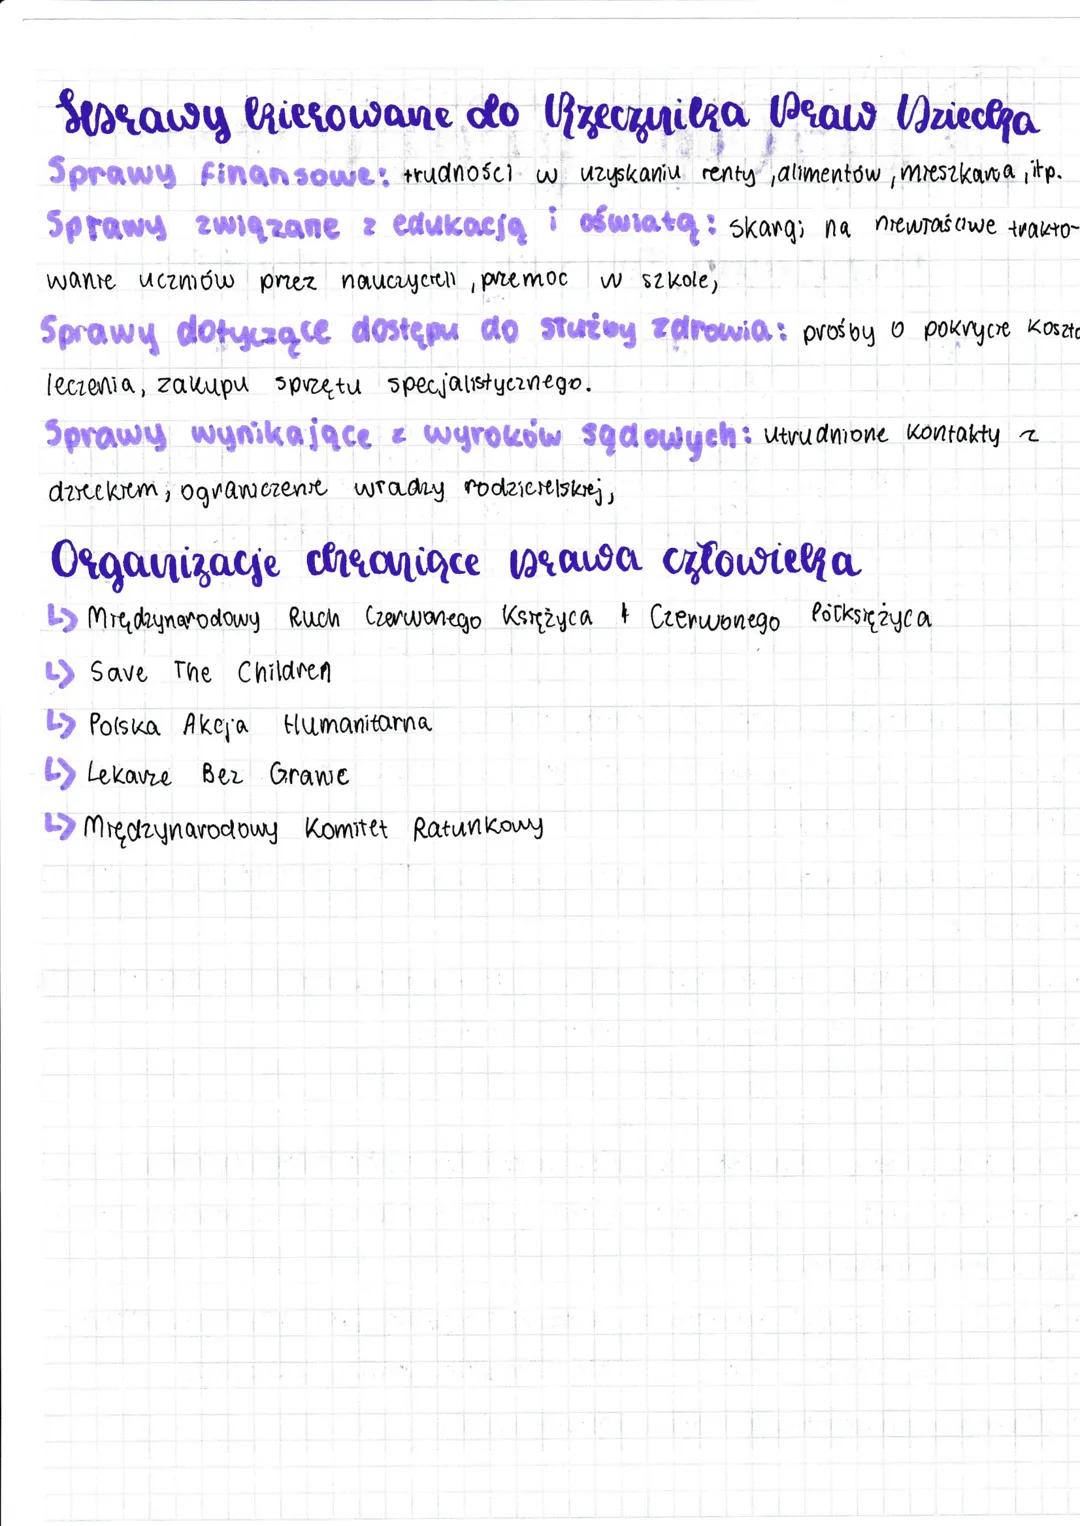 Sprawy kierowane do Rzecznika Praw Dziecka
Sprawy finansowe: trudności w uzyskaniu renty, alimentów, mieszkania, itp.
Sprawy związane z edukacją i oświatą: skargi na niewłaściwe trakto-
wanie uczniów przez nauczycieli, przemoc w szkole,
Sprawy dotyczące dostępu do służby zdrowia: prośby o pokrycie koszto
leczenia, zakupu sprzętu specjalistycznego.
Sprawy wynikające z wyroków sądowych: utrudnione kontakty z
dzieckiem, ograniczenie władzy rodzicielskiej,
Organizacje chroniące prawa człowieka
↳ Międzynarodowy Ruch Czerwonego Księżyca i Czerwonego Półksiężyca
↳ Save The Children
↳ Polska Akcja Humanitarna
↳ Lekarze Bez Granic
↳ Międzynarodowy Komitet Ratunkowy